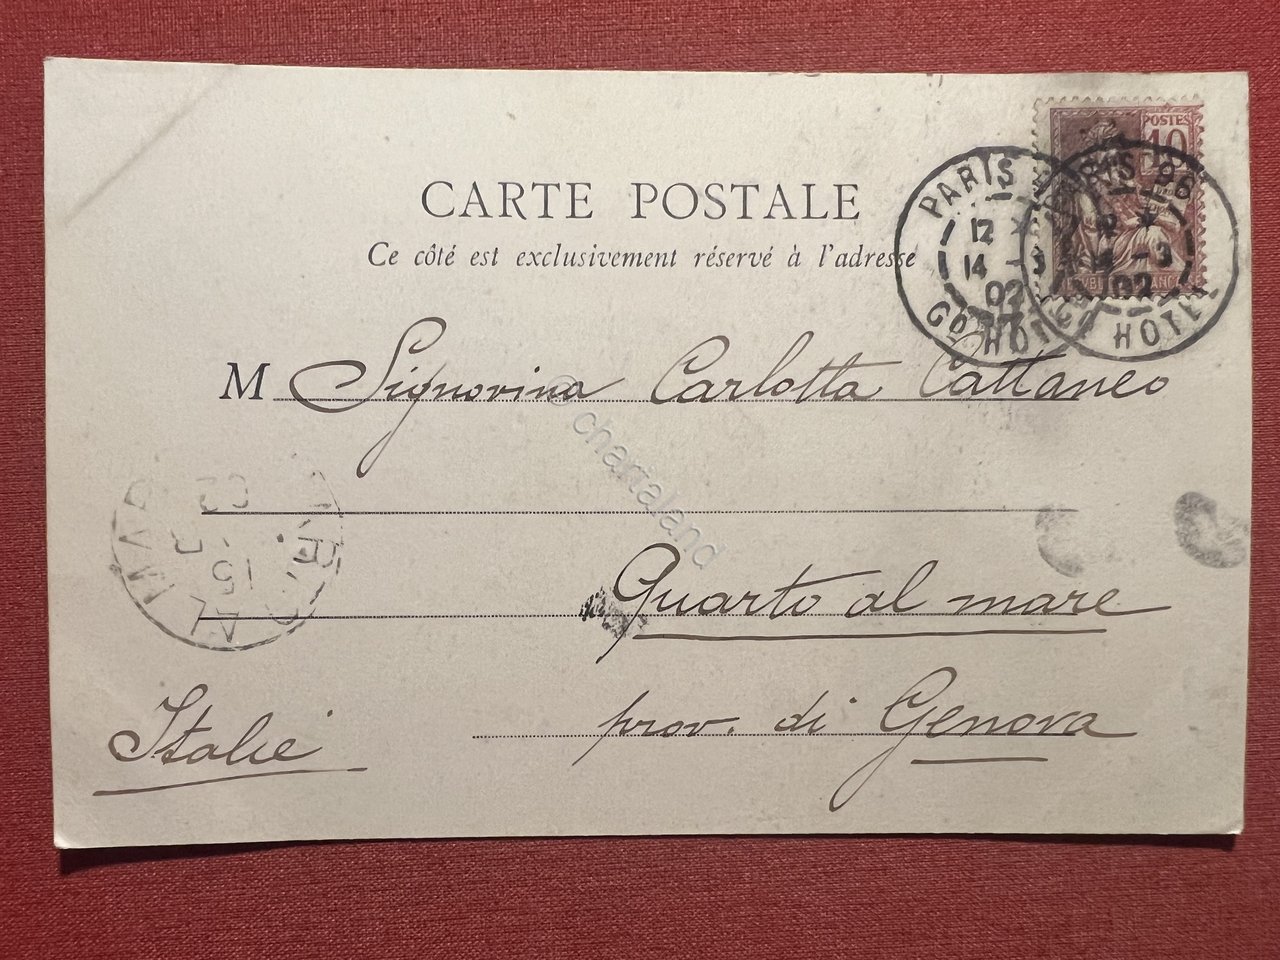 POSTES
10
PARIS
12 *
14 -3
02
Gd HOTEL
PARIS 96
12 *
14 -3
02
Gd HOTEL
CARTE POSTALE
Ce côté est exclusivement réservé à l'adresse
M Signorina Carlotta Cattaneo
© chartaland
QUARTO AL MARE
15
3
02
Quarto al mare
prov. di Genova
Italie